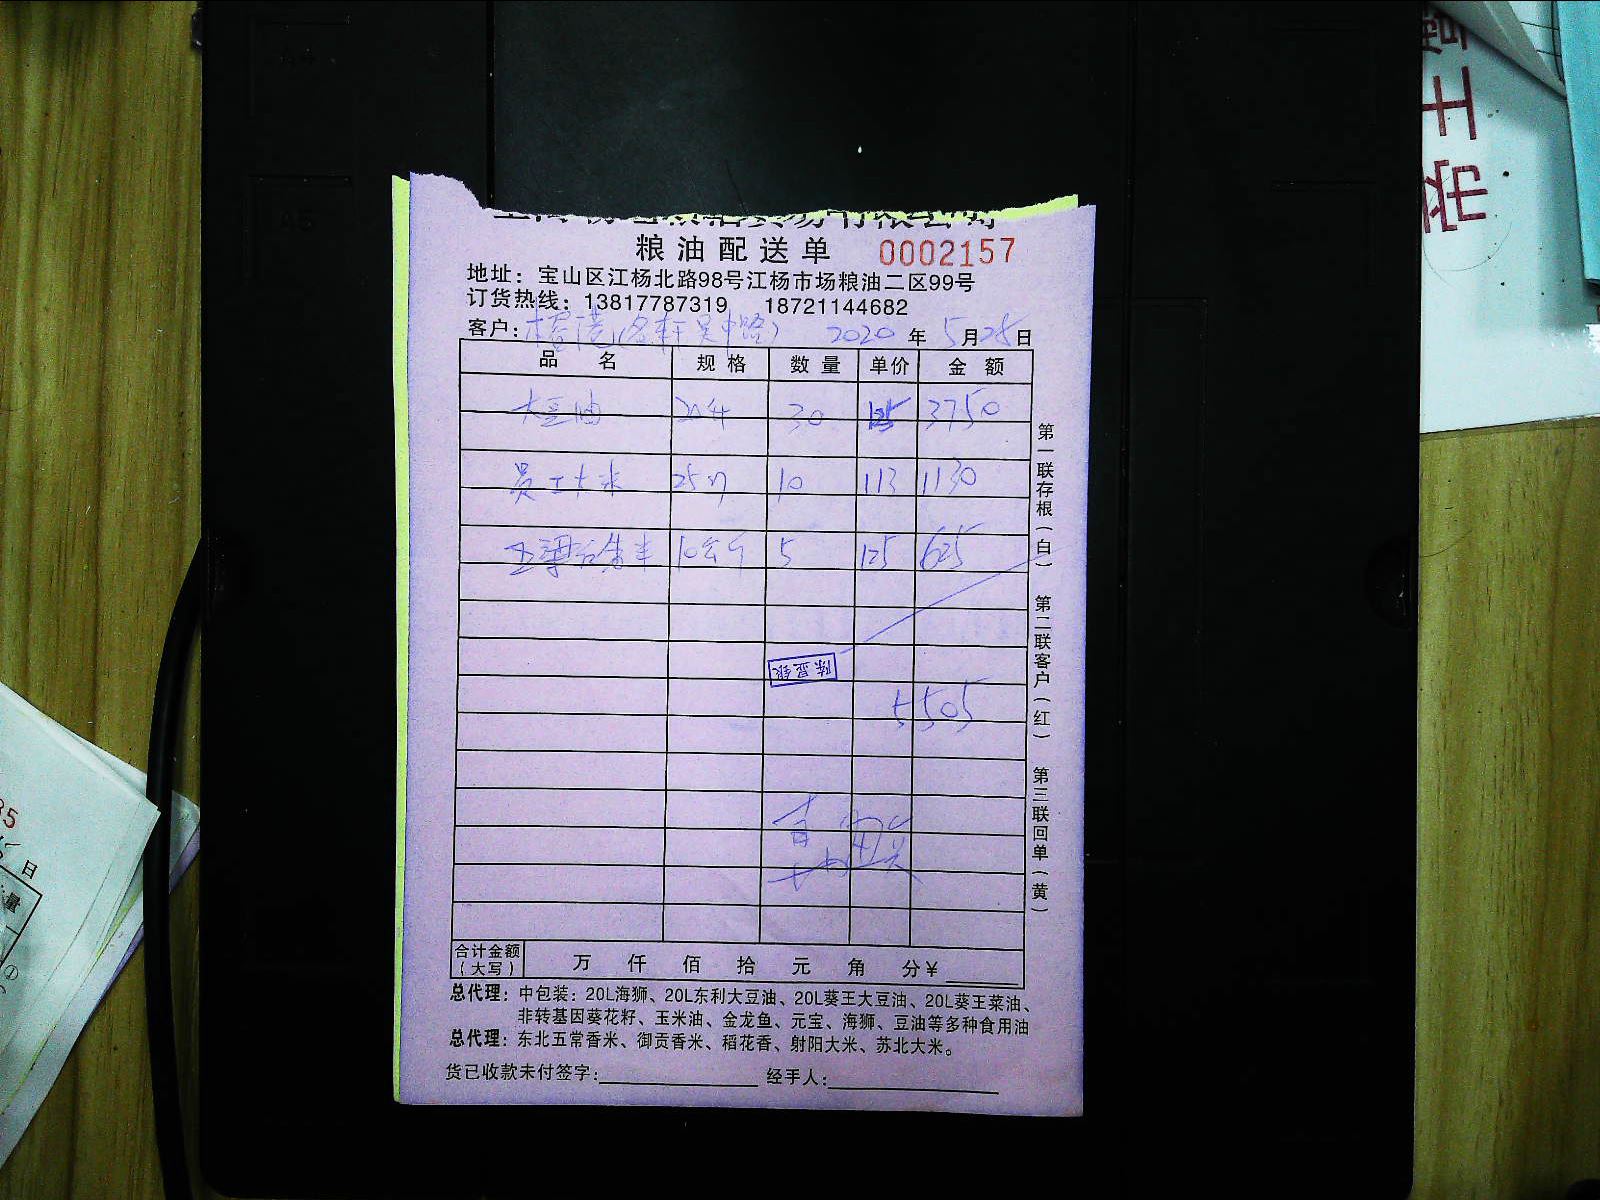 粮油配送单 0002157
地址：宝山区江杨北路98号江杨市场粮油二区99号
订货热线：13817787319 18721144682
客户： 2020 年 5 月 28 日
品 名 规 格 数 量 单价 金 额
大豆油 20升 30 125 3750
员工大米 25 10 113 1130
10公斤 5 125 625
5505
合计金额（大写） 万 仟 佰 拾 元 角 分￥
总代理：中包装：20L海狮、20L东利大豆油、20L葵王大豆油、20L葵王菜油、
非转基因葵花籽、玉米油、金龙鱼、元宝、海狮、豆油等多种食用油
总代理：东北五常香米、御贡香米、稻花香、射阳大米、苏北大米。
货已收款未付签字: 经手人:
第一联存根（白） 第二联客户（红） 第三联回单（黄）
帝王
日
量